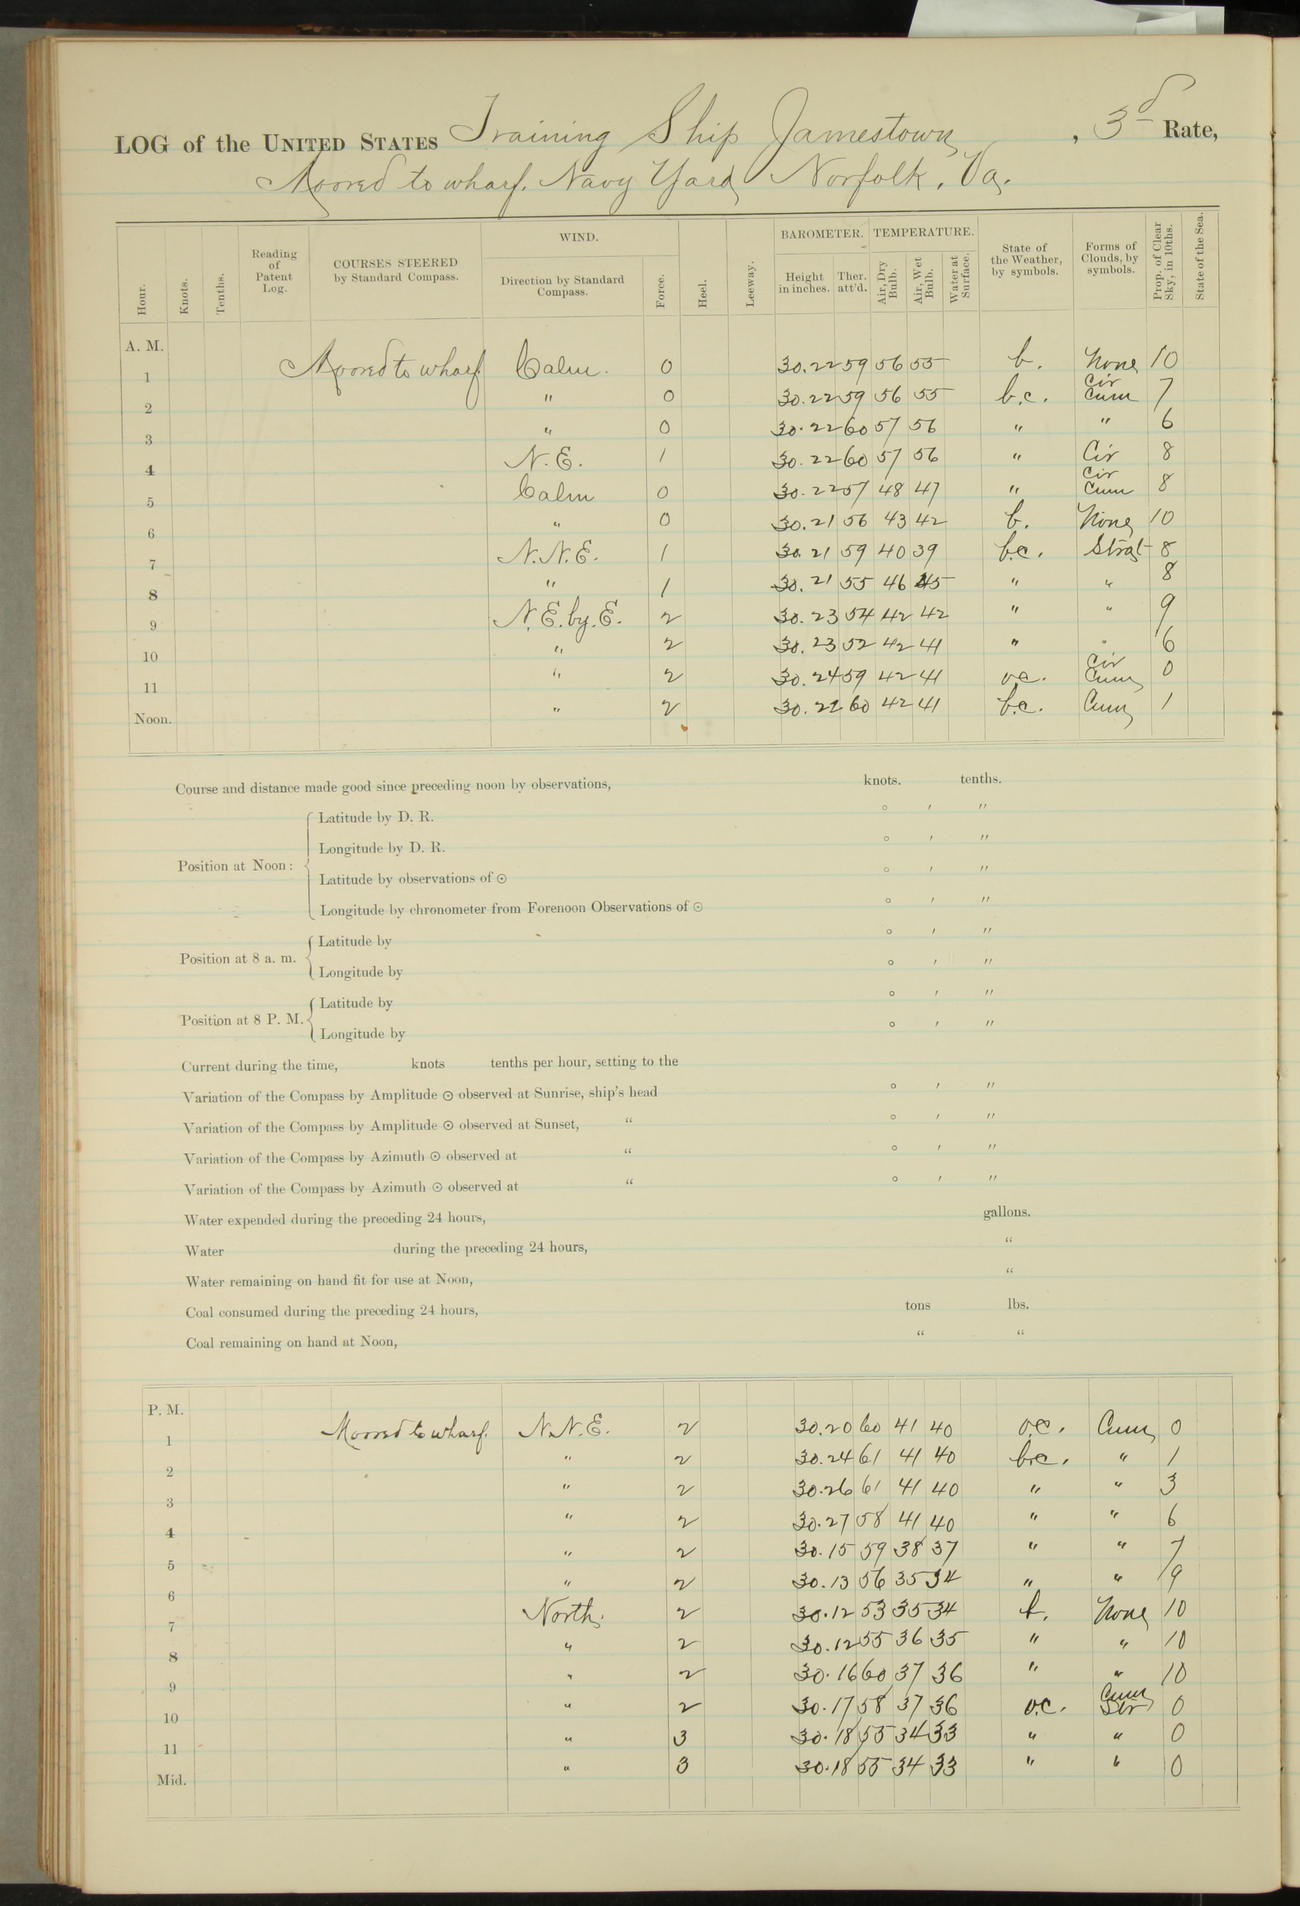 LOG of the UNITED STATES Training Ship Jamestown, 3d Rate,
Moored to wharf. Navy Yard Norfolk, Va.
Hour. Knots. Tenths. Reading of Patent Log. COURSES STEERED by Standard Compass. WIND. Direction by Standard Compass. Force. Heel. Leeway. BAROMETER. Height in inches. Ther. att'd. TEMPERATURE. Air, Dry Bulb. Air, Wet Bulb. Water at Surface. State of the Weather, by symbols. Forms of Clouds, by symbols. Prop. of Clear Sky, in 10ths. State of the Sea.
A. M.
1 Moored to wharf Calm. 0 30.22 59 56 55 b. None 10
2 " 0 30.22 59 56 55 b.c. Cir Cum 7
3 " 0 30.22 60 57 56 " " 6
4 N.E. 1 30.22 60 57 56 " Cir 8
5 Calm 0 30.22 57 48 47 " Cir Cum 8
6 " 0 30.21 56 43 42 b. None 10
7 N.N.E. 1 30.21 59 40 39 b.c. Strat 8
8 " 1 30.21 55 46 45 " " 8
9 N.E. by. E. 2 30.23 54 42 42 " " 9
10 " 2 30.23 52 42 41 " " 6
11 " 2 30.24 59 42 41 o.c. Cir Cum 0
Noon. " 2 30.22 60 42 41 b.c. Cum 1
Course and distance made good since preceding noon by observations, knots. tenths.
Position at Noon: Latitude by D. R. ° ' "
Longitude by D. R. ° ' "
Latitude by observations of ⊙ ° ' "
Longitude by chronometer from Forenoon Observations of ⊙ ° ' "
Position at 8 a. m. Latitude by ° ' "
Longitude by ° ' "
Position at 8 P. M. Latitude by ° ' "
Longitude by ° ' "
Current during the time, knots tenths per hour, setting to the
Variation of the Compass by Amplitude ⊙ observed at Sunrise, ship's head ° ' "
Variation of the Compass by Amplitude ⊙ observed at Sunset, " ° ' "
Variation of the Compass by Azimuth ⊙ observed at " ° ' "
Variation of the Compass by Azimuth ⊙ observed at " ° ' "
Water expended during the preceding 24 hours, gallons.
Water during the preceding 24 hours, "
Water remaining on hand fit for use at Noon, "
Coal consumed during the preceding 24 hours, tons lbs.
Coal remaining on hand at Noon, " "
P. M.
1 Moored to wharf. N.N.E. 2 30.20 60 41 40 o.c. Cum 0
2 " 2 30.24 61 41 40 b.c. " 1
3 " 2 30.26 61 41 40 " " 3
4 " 2 30.27 58 41 40 " " 6
5 " 2 30.15 59 38 37 " " 7
6 " 2 30.13 56 35 34 " " 9
7 North. 2 30.12 53 35 34 b. None 10
8 " 2 30.12 55 36 35 " " 10
9 " 2 30.16 60 37 36 " " 10
10 " 2 30.17 58 37 36 o.c. Cum Str 0
11 " 3 30.18 55 34 33 " " 0
Mid. " 3 30.18 55 34 33 " " 0